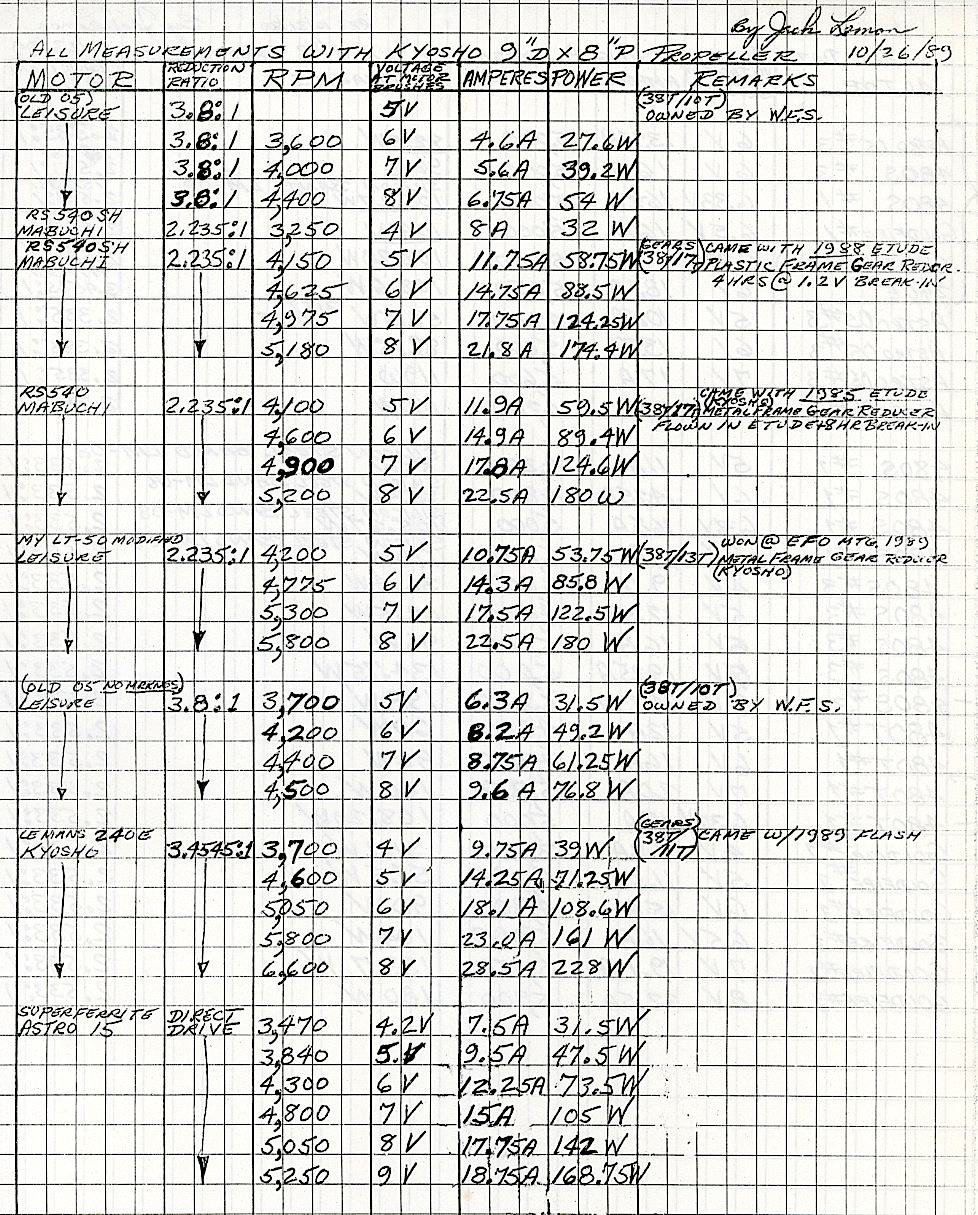 By Jack Lemon
ALL MEASUREMENTS WITH KYOSHO 9"D X 8"P PROPELLER 10/26/89
MOTOR REDUCTION RATIO RPM VOLTAGE AT MOTOR BRUSHES AMPERES POWER REMARKS
(OLD 05) (38T/10T)
LEISURE 3.8:1 5V OWNED BY W.F.S.
3.8:1 3,600 6V 4.6A 27.6W
3.8:1 4,000 7V 5.6A 39.2W
3.8:1 4,400 8V 6.75A 54 W
RS540SH
MABUCHI 2.235:1 3,250 4V 8A 32 W
RS540SH (GEARS) CAME WITH 1988 ETUDE
MABUCHI 2.235:1 4,150 5V 11.75A 58.75W (38/17) PLASTIC FRAME GEAR REDCR.
4 HRS @ 1.2V BREAK-IN
4,625 6 V 14.75A 88.5W
4,975 7 V 17.75A 124.25W
5,180 8 V 21.8A 174.4W
RS540 CAME WITH 1985 ETUDE
(KYOSHO)
MABUCHI 2.235:1 4,100 5V 11.9A 59.5W (38T/17T) METAL FRAME GEAR REDUCER
FLOWN IN ETUDE+8HR BREAK-IN
4,600 6 V 14.9A 89.4W
4,900 7 V 17.8A 124.6W
5,200 8 V 22.5A 180W
MY LT-50 MODIFIED WON @ EFO MTG. 1989
LEISURE 2.235:1 4,200 5V 10.75A 53.75W (38T/13T) METAL FRAME GEAR REDUCER
(KYOSHO)
4,775 6 V 14.3A 85.8W
5,300 7 V 17.5A 122.5W
5,800 8 V 22.5A 180 W
(OLD 05 NO MRKNGS) (38T/10T)
LEISURE 3.8:1 3,700 5V 6.3A 31.5W OWNED BY W.F.S.
4,200 6V 8.2A 49.2W
4,400 7V 8.75A 61.25W
4,500 8V 9.6A 76.8W
LEMANS 240E (GEARS)
KYOSHO 3.4545:1 3,700 4V 9.75A 39W (38T/11T) CAME W/1989 FLASH
4,600 5V 14.25A 71.25W
5,050 6V 18.1A 108.6W
5,800 7V 23.0A 161 W
6,600 8V 28.5A 228W
SUPERFERRITE DIRECT
ASTRO 15 DRIVE 3,470 4.2V 7.5A 31.5W
3,840 5.V 9.5A 47.5W
4,300 6V 12.25A 73.5W
4,800 7V 15A 105 W
5,050 8V 17.75A 142W
5,250 9V 18.75A 168.75W